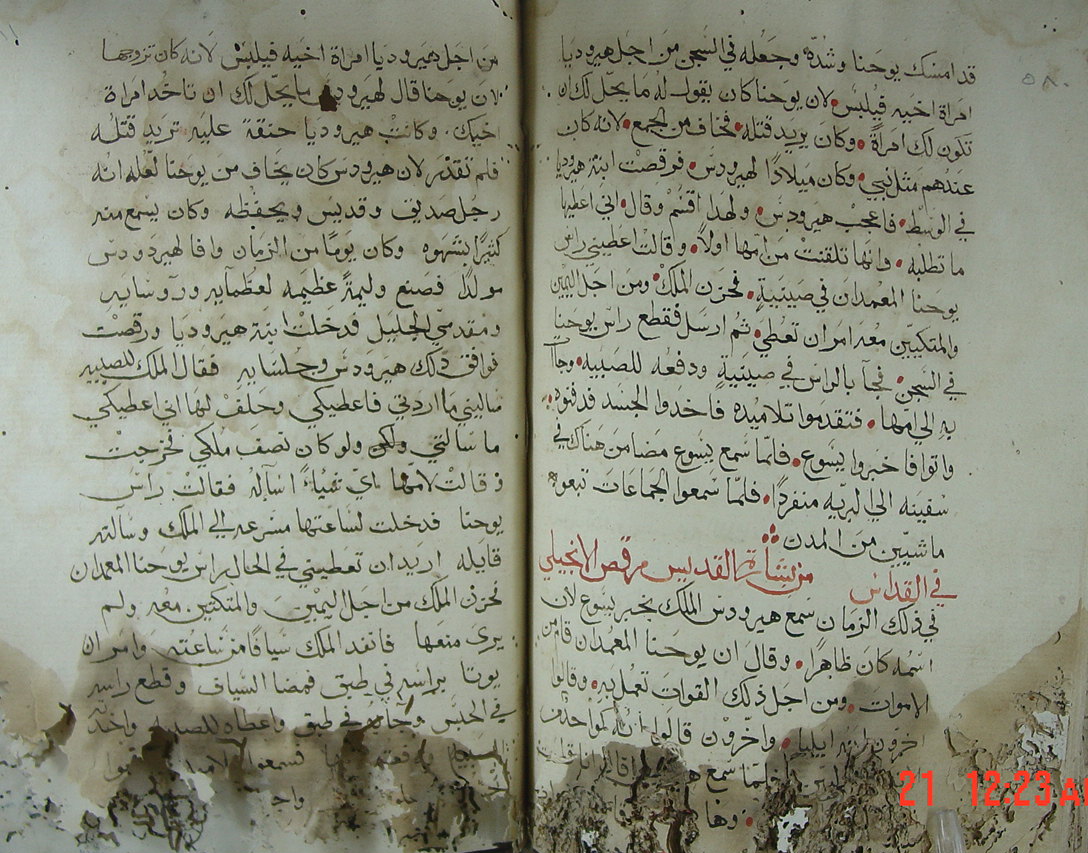 قد امسك يوحنا وشدّه وجعله في السجن من اجل هيروديا
امراة اخيه فيلبس لان يوحنا كان يقول له ما يحّل لك ان
تكون لك امراةً وكان يريد قتله فخاف من الجمع لانه كان
عندهم مثل نبي وكان ميلادًا لهيرودس فرقصت ابنة هيروديا
في الوسط فاعجب هيرودس ولهدا اقسم وقال اني اعطيها
ما تطلبه وانها تلقنت من امها اولاً وقالت اعطيني راس
يوحنا المعمدان في صينيةٍ فحزن الملك ومن اجل اليمين
والمتكيين معه امر ان تعطى ثم ارسل فقطع راس يوحنا
في السجن فجآ بالراس في صينيةٍ ودفعه للصبيه وجآت
به الى امها فتقدموا تلاميده فاخدوا الجسد فدفنوه
واتوا فاخبروا يسوع فلمّا سمع يسوع مضا من هناك في
سفينه الي البريه منفردًا فلمّا سمعوا الجماعات تبعوه
ماشيّين من المدن
في القداس من بشارة القديس مرقص الانجيلي
في ذلك الزمان سمع هيرودس الملك بخبر يسوع لان
اسمه كان ظاهرًا وقال ان يوحنا المعمدان قام من
الاموات ومن اجل ذلك القوات تعمل به وقالوا
اخرون انه ايليا واخرون قالوا انه كواحد من
فلمّا سمع
وها
من اجل هيروديا امراة اخيه فيلبس لانه كان تزوجها
لان يوحنا قال لهيرودس ما يحّل لك ان تاخد امراة
اخيك وكانت هيروديا حنقة عليه تريد قتله
فلم تقدر لان هيرودس كان يخاف من يوحنا لعلمه انه
رجل صديق وقديس ويحفظه وكان يسمع منه
كثيرًا بشهوه وكان يومًا من الزمان وافا لهيرودس
مولدًا فصنع وليمةً عظيمه لعظمايه وروسايه
ومقدمي الجليل فدخلت ابنة هيروديا ورقصت
فوافق ذلك هيرودس وجلسايه فقال الملك للصبيه
ساليني ما اردتي فاعطيكي وحلف لها اني اعطيكي
ما سالتي ولو كان نصف ملكي فخرجت
وقالت لامها اي شياءً اساله فقالت راس
يوحنا فدخلت لساعتها مسرعه الي الملك وسالته
قايله اريد ان تعطيني في الحال راس يوحنا المعمدان
فحزن الملك من اجل اليمين والمتكيين معه ولم
يرى منعها فانفد الملك سيافًا من ساعته وامر ان
يوتا براسه في طبق فمضا السياف وقطع راسه
في الحبس وجابه في طبق واعطاه للصبيه واخد
فسمعوا
21 12:23 A